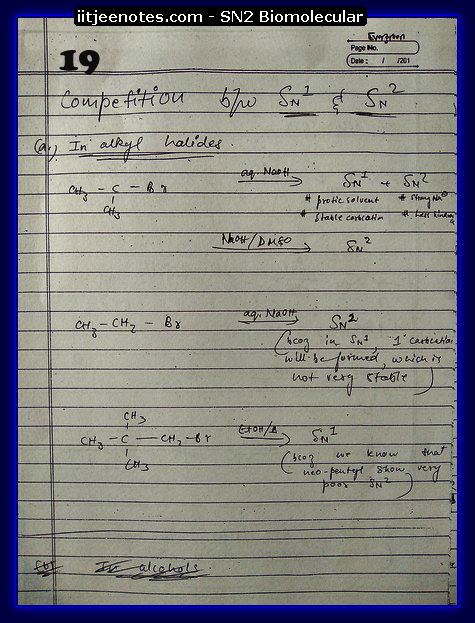 iitjeenotes.com - SN2 Biomolecular
Evergreen
Page No.
Date : / /201
19
Competition b/w SN1 & SN2
(a.) In alkyl halides.
CH3 - C - Br aq. NaOH → SN1 + SN2
CH3
# protic solvent # strong Nu⊖
# stable carbcation # less hindrance
NaOH/DMSO → SN2
CH3 - CH2 - Br aq. NaOH → SN2
(bcoz in SN1, 1° carbcation
will be formed, which is
not very stable)
CH3
CH3 - C - CH2 - Br EtOH/Δ → SN1
CH3
(bcoz we know that
neo-pentyl show very
poor SN2)
In alcohols.